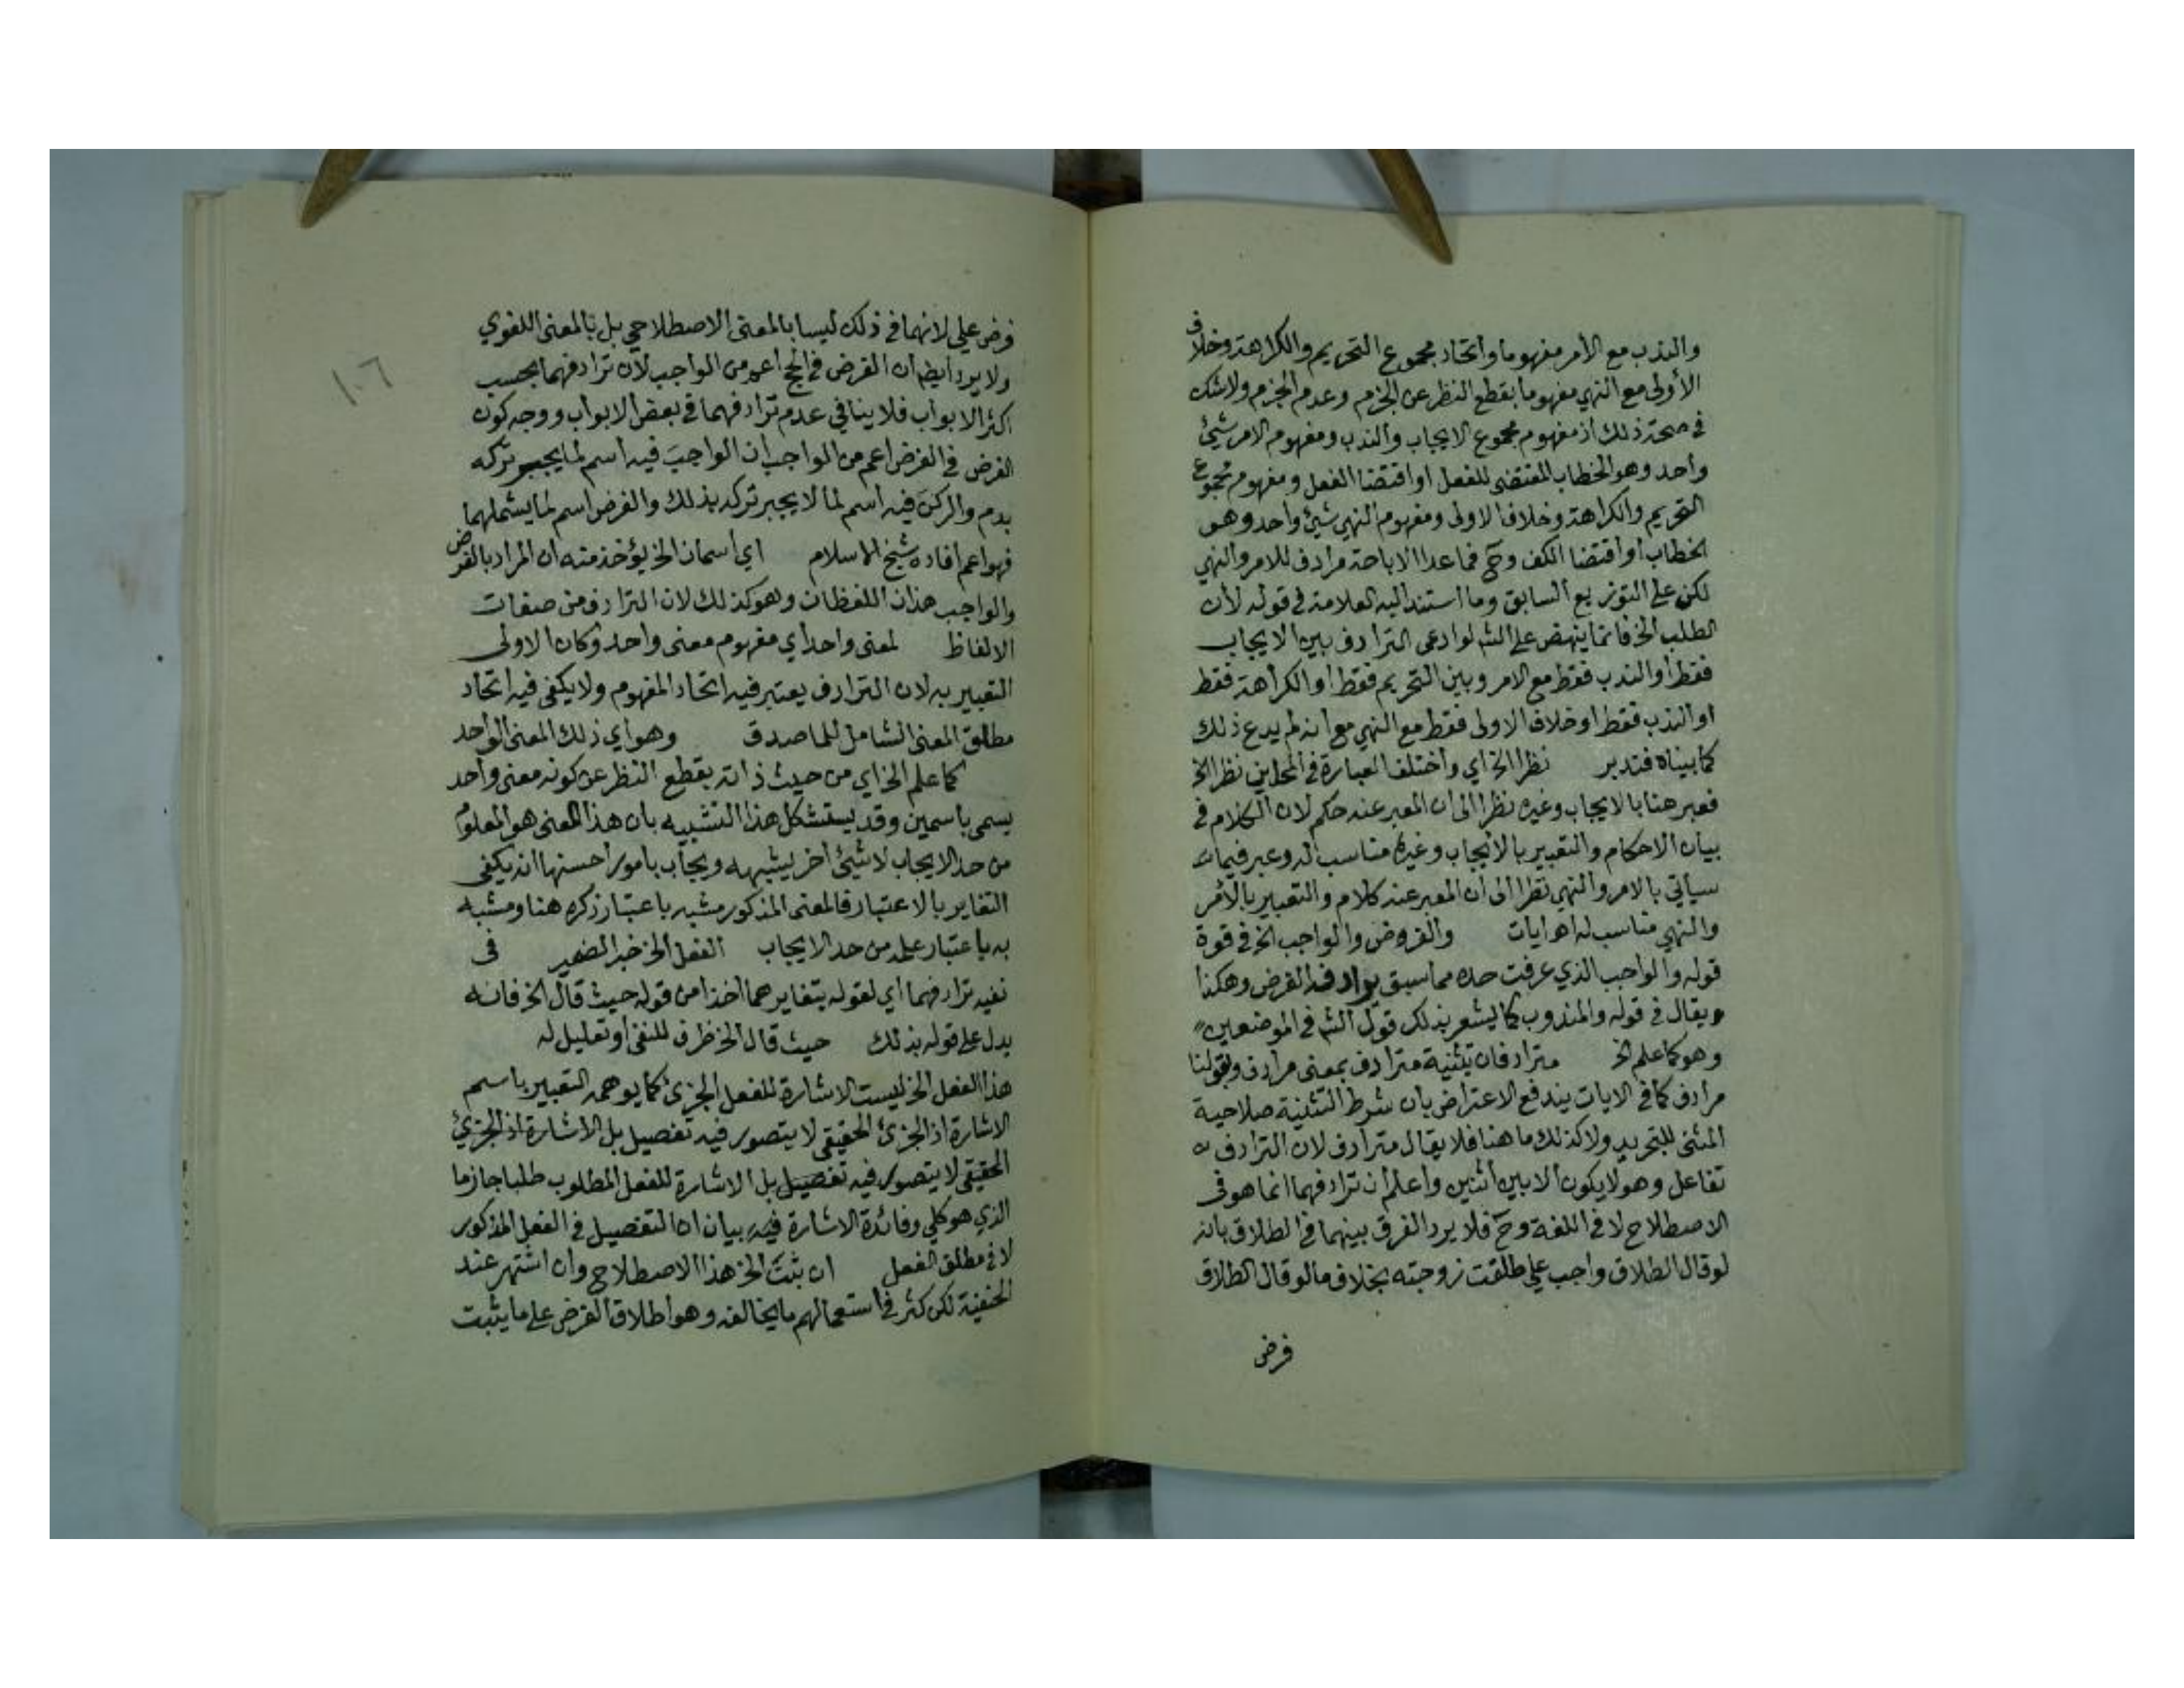 والندب مع الأمر مفهوما واتحاد مجموع التحريم والكراهة وخلاف
الأولى مع النهي مفهوما بقطع النظر عن الجزم وعدم الجزم ولا شك
في صحة ذلك اذ مفهوم مجموع الايجاب والندب ومفهوم الامر شيئ
واحد وهو الخطاب المقتضى للفعل او اقتضا الفعل ومفهوم مجموع
التحريم والكراهة وخلاف الاولى ومفهوم النهي شيئ واحد وهو
الخطاب او اقتضا الكف وح فما عدا الاباحة مرادف للامر والنهي
لكن على التوزيع السابق وما استند اليه العلامة في قوله لأن
الطلب الخ فانما ينهض على الش لو ادعى الترادف بين الايجاب
فقط او الندب فقط مع الامر وبين التحريم فقط او الكراهة فقط
او الندب فقط او خلاف الاولى فقط مع النهي مع انه لم يدع ذلك
كما بيناه فتدبر نظرا الخ اي واختلف العبارة في المحلين نظرا الخ
فعبر هنا بالايجاب وغيره نظرا الى ان المعبر عنه حكم لان الكلام في
بيان الاحكام والتعبير بالايجاب وغيره مناسب له وعبر فيما
سياتي بالامر والنهي نظرا الى ان المعبر عنه كلام والتعبير بالأمر
والنهي مناسب له اهـ ايات والفروض والواجب الخ في قوة
قوله والواجب الذي عرفت حده مما سبق يرادف الفرض وهكذا
ويقال في قوله والمندوب كما يشعر بذلك قول الش في الموضعين
وهو كما علم الخ مترادفان تثنية مترادف بمعنى مرادف وبقولنا
مرادف كما في الايات يندفع الاعتراض بان شرط التثنية صلاحية
المثنى للتجريد ولا كذلك ما هنا فلا يقال مترادف لان الترادف
تفاعل وهو لا يكون الا بين اثنين واعلم ان ترادفهما انما هو في
الاصطلاح لا في اللغة وح فلا يرد الفرق بينهما في الطلاق بانه
لو قال الطلاق واجب علي طلقت زوجته بخلاف ما لو قال الطلاق
فرض
١٠٦
فرض علي لانهما في ذلك ليسا بالمعنى الاصطلاحي بل بالمعنى اللغوي
ولا يرد ايضا ان الفرض في الحج اعم من الواجب لأن ترادفهما بحسب
اكثر الابواب فلا ينافي عدم ترادفهما في بعض الابواب ووجه كون
الفرض في الفرض اعم من الواجب ان الواجب فيه اسم لما يجبر تركه
بدم والركن فيه اسم لما لا يجبر تركه بذلك والفرض اسم لما يشملهما
فهو اعم افاده شيخ الاسلام اي اسمان الخ يؤخذ منه ان المراد بالفرض
والواجب هذان اللفظان وهو كذلك لان الترادف من صفات
الالفاظ لمعنى واحد اي مفهوم معنى واحد وكان الاولى
التعبير به لان الترادف يعتبر فيه اتحاد المفهوم ولا يكفي فيه اتحاد
مطلق المعنى الشامل للماصدق وهو اي ذلك المعنى الواحد
كما علم الخ اي من حيث ذاته بقطع النظر عن كونه معنى واحد
يسمى باسمين وقد يستشكل هذا التشبيه بان هذا المعنى هو المعلوم
من حد الايجاب لا شيئ اخر يشبهه ويجاب بامور احسنها انه يكفي
التغاير بالاعتبار فالمعنى المذكور مشبه باعتبار ذكره هنا ومشبه
به باعتبار علمه من حد الايجاب الفعل الخ خبر الضمير في
نفيه ترادفهما اي لقوله بتغايرهما اخذا من قوله حيث قال الخ فانه
يدل على قوله بذلك حيث قال الخ ظرف للنفي او تعليل له
هذا الفعل الخ ليست الاشارة للفعل الجزئ كما يوهمه التعبير باسم
الاشارة اذ الجزئ الحقيقي لا يتصور فيه تفصيل بل الاشارة اذ الجزئ
الحقيقي لا يتصور فيه تفصيل بل الاشارة للفعل المطلوب طلبا جازما
الذي هو كلي وفائدة الاشارة فيه بيان ان التفصيل في الفعل المذكور
لا في مطلق الفعل ان ثبت الخ هذا الاصطلاح وان اشتهر عند
الحنفية لكن كثر في استعمالهم ما يخالفه وهو اطلاق الفرض على ما يثبت